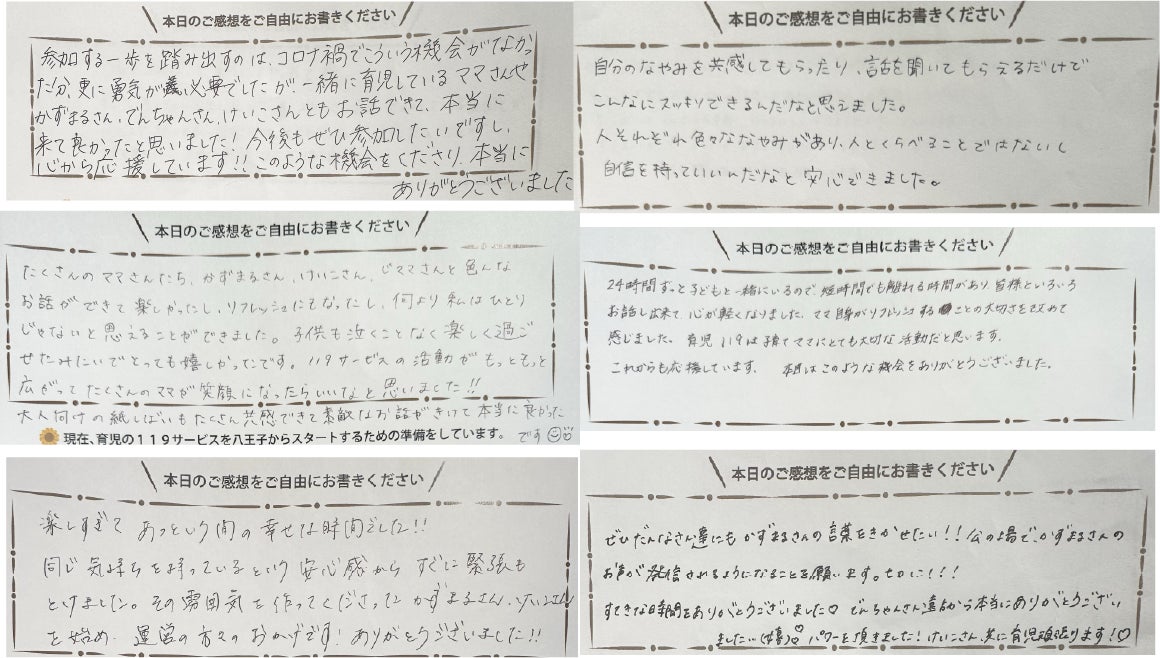 本日のご感想をご自由にお書きください
参加する一歩を踏み出すのは、コロナ禍でこういう機会がなかっ
た分、更に勇気が必要でしたが一緒に育児しているママさんや
かずまるさん、でんちゃんさん、けいこさんともお話できて、本当に
来て良かったと思いました!今後もぜひ参加したいですし、
心から応援しています!!このような機会をくださり、本当に
ありがとうございました
本日のご感想をご自由にお書きください
自分のなやみを共感してもらったり、話を聞いてもらえるだけで
こんなにスッキリできるんだなと思えました。
人それぞれ色々ななやみがあり、人とくらべることではないし
自信を持っていいんだなと安心できました。
本日のご感想をご自由にお書きください
たくさんのママさんたち、かずまるさん、けいこさん、じママさんと色んな
お話ができて楽しかったし、リフレッシュにもなったし、何より私はひとり
じゃないと思えることができました。子供も泣くことなく楽しく過ご
せたみたいでとっても嬉しかったです。119サービスの活動がもっともっと
広がってたくさんのママが笑顔になったらいいなと思いました!!
大人向けの紙しばいもたくさん共感できて素敵なお話がきけて本当に良かった
です
現在、育児の119サービスを八王子からスタートするための準備をしています。
本日のご感想をご自由にお書きください
24時間ずっと子どもと一緒にいるので、短時間でも離れる時間があり、皆様といろいろ
お話し出来て、心が軽くなりました。ママ自身がリフレッシュすることの大切さを改めて
感じました。育児119は子育てママにとても大切な活動だと思います。
これからも応援しています。本日はこのような機会をありがとうございました。
本日のご感想をご自由にお書きください
楽しすぎて あっという間の幸せな時間でした!!
同じ気持ちを持っているという安心感からすぐに緊張も
とけました。その雰囲気を作ってくださったかずまるさん、けいこさん
を始め、運営の方々のおかげです!ありがとうございました!!
本日のご感想をご自由にお書きください
ぜひだんなさん達にもかずまるさんの言葉をきかせたい!!公の場で、かずまるさんの
お声が発信されるようになることを願います。切に!!!
すてきな時間をありがとうございました♡ でんちゃんさん遠方から本当にありがとうござい
ました(嬉)♡ パワーを頂きました!けいこさん、共に育児頑張ります!♡